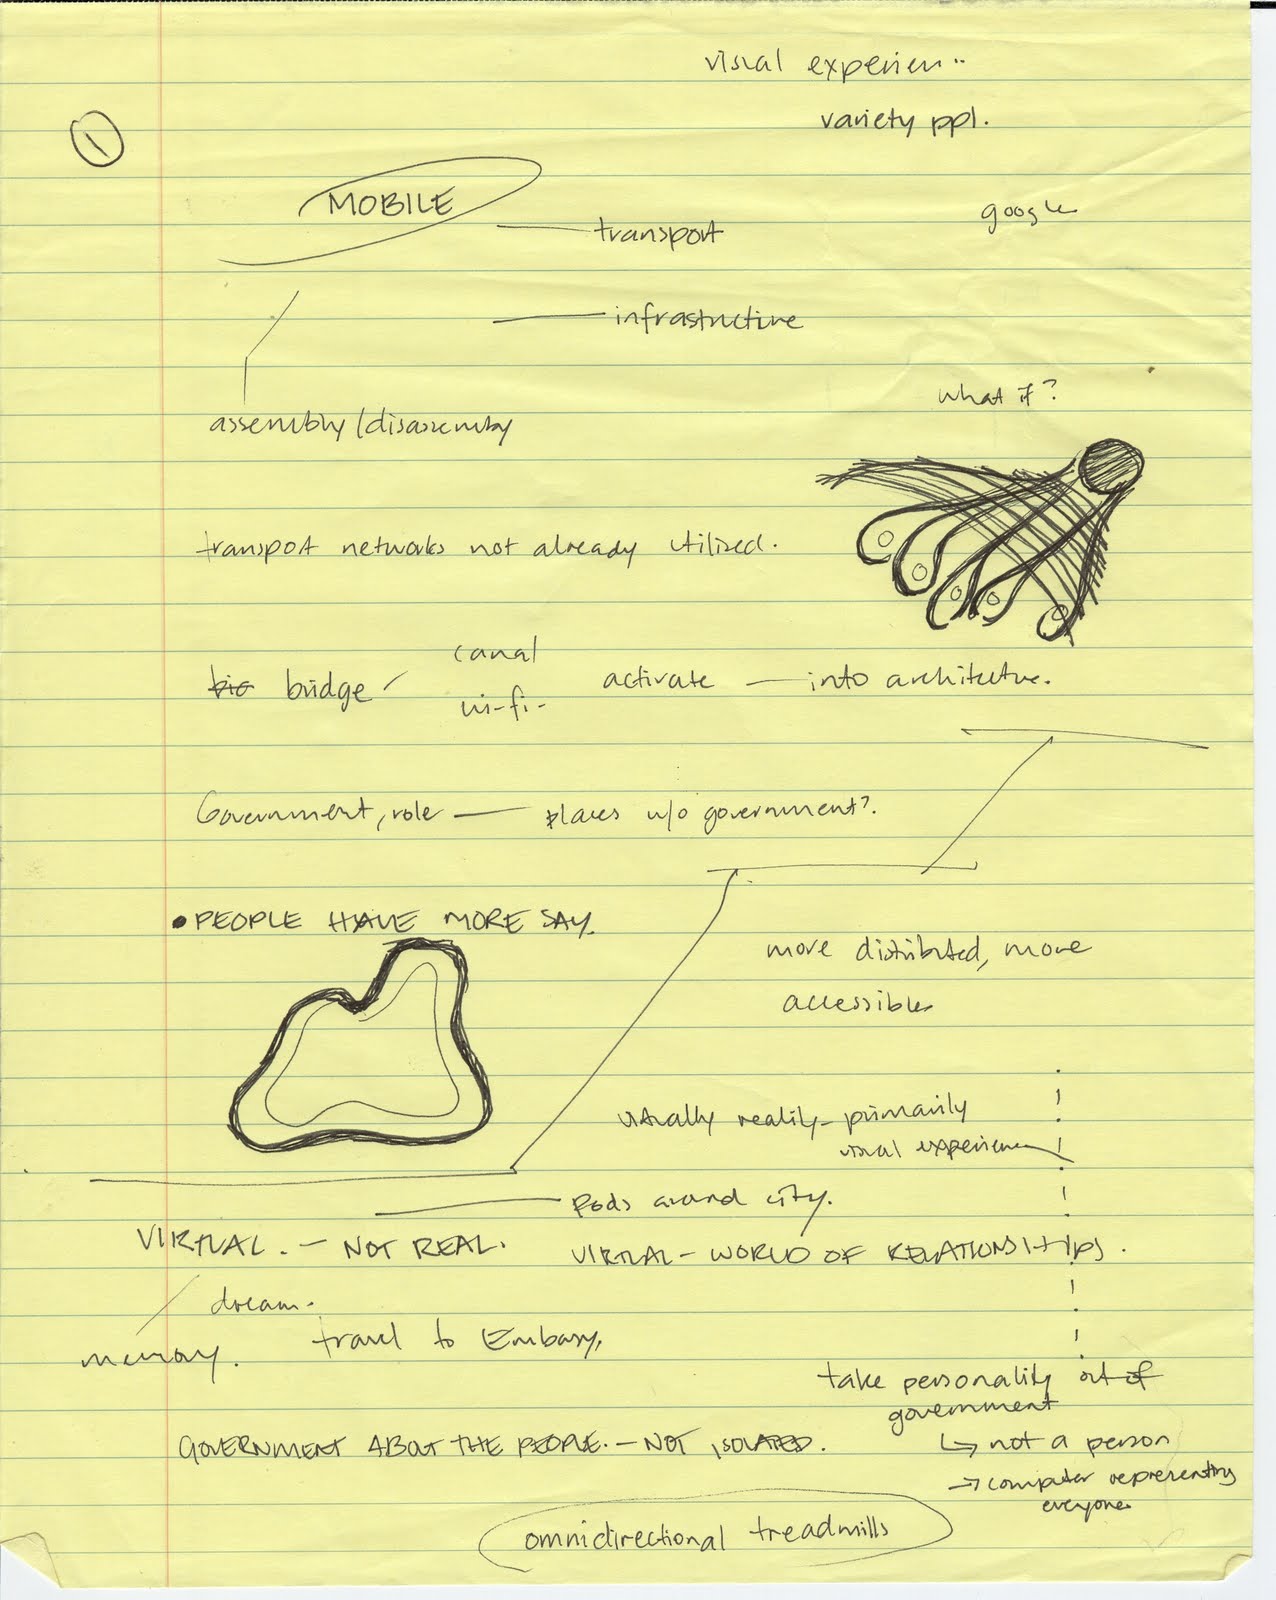 visual experien..
variety ppl.
1
MOBILE
google
transport
infrastructure
what if?
assembly/disassembly
transport networks not already utilized.
canal
big bridge
activate — into architecture.
wi-fi-
Government, role — places w/o government?.
• PEOPLE HAVE MORE SAY.
more distributed, more
accessible
reality - primarily
visual experience
Pods around city.
VIRTUAL. — NOT REAL.
VIRTUAL — WORLD OF RELATIONSHIPS.
dream.
memory.
travel to Embassy,
take personality out of
government
GOVERNMENT ABOUT THE PEOPLE. — NOT ISOLATED.
↳ not a person
→ computer representing
everyone
omnidirectional treadmills